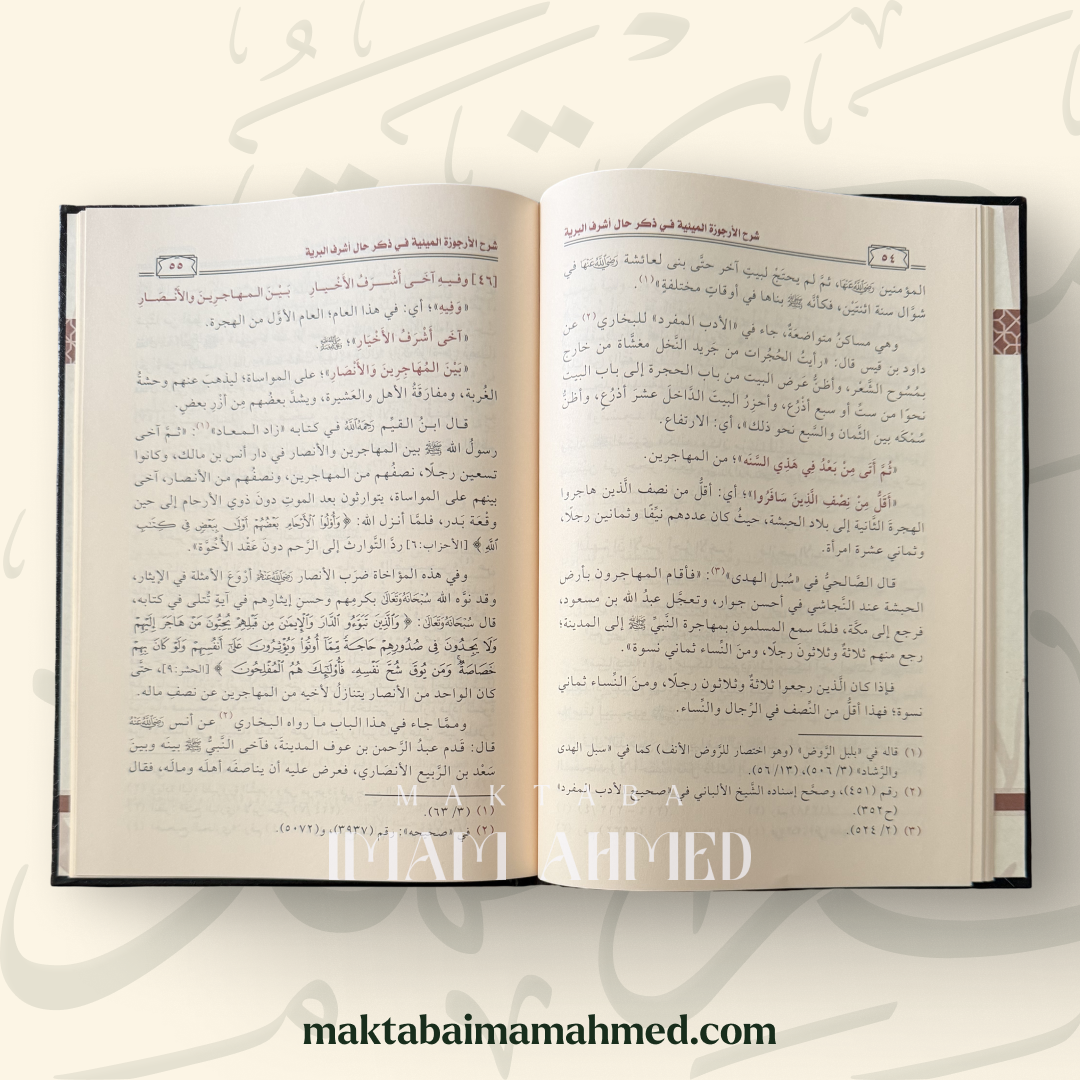 شرح الأرجوزة الميئية في ذكر حال أشرف البرية
٥٤
المؤمنين رَضِيَ اللَّهُ عَنْهَا، ثمَّ لم يحتَجْ لبيتٍ آخر حتَّى بنى لعائشة رَضِيَ اللَّهُ عَنْهَا في
شوَّال سنة اثنتَيْن، فكأنَّه ﷺ بناها في أوقاتٍ مختلفةٍ»(١).
وهي مساكنُ متواضعةٌ، جاء في «الأدب المفرد» للبخاري(٢) عن
داود بن قيس قال: «رأيتُ الحُجُرات من جَريد النَّخل مغشَّاة من خارج
بمُسُوح الشَّعْر، وأظنُّ عَرض البيت من باب الحجرة إلى باب البيت
نحوًا من ستِّ أو سبع أذرُع، وأحزِرُ البيتَ الدَّاخلَ عشرَ أذرُعٍ، وأظنُّ
سُمْكَه بين الثَّمان والسَّبع نحو ذلك»، أي: الارتفاع.
«ثُمَّ أَتَى مِنْ بَعْدُ فِي هَذِي السَّنَه»؛ من المهاجرين.
«أَقَلُّ مِنْ نِصْفِ الَّذِينَ سَافَرُوا»؛ أي: أقلُّ من نصف الَّذين هاجروا
الهجرةَ الثَّانية إلى بلاد الحبشة، حيثُ كان عددهم نيِّفًا وثمانين رجلًا،
وثماني عشرة امرأة.
قال الصَّالحيُّ في «سُبل الهدى»(٣): «فأقام المهاجرون بأرض
الحبشة عند النَّجاشي في أحسن جوار، وتعجَّل عبدُ الله بن مسعود،
فرجع إلى مكَّة، فلمَّا سمع المسلمون بمهاجرة النَّبيِّ ﷺ إلى المدينة؛
رجع منهم ثلاثةٌ وثلاثونَ رجلًا، ومنَ النِّساء ثماني نسوة».
فإذا كان الَّذين رجعوا ثلاثةٌ وثلاثون رجلًا، ومنَ النِّساء ثماني
نسوة؛ فهذا أقلُّ من النِّصف في الرِّجال والنِّساء.
(١) قاله في «بلبل الرَّوض» (وهو اختصار للرَّوض الأنف) كما في «سبل الهدى
والرَّشاد» (٣/ ٥٠٦)، (١٣/ ٥٦).
(٢) رقم (٤٥١)، وصحَّح إسناده الشَّيخ الألباني في «صحيح الأدب المفرد»
(ح٣٥٢).
(٣) (٢/ ٥٢٤).
شرح الأرجوزة الميئية في ذكر حال أشرف البرية
٥٥
[٤٦] وفيهِ آخَى أَشْرَفُ الأَخْيارِ بَيْنَ المهاجرينَ والأَنْصارِ
«وَفِيهِ»؛ أي: في هذا العام؛ العام الأوَّل من الهجرة.
«آخَى أَشْرَفُ الأَخْيَارِ»؛ ﷺ.
«بَيْنَ المُهَاجِرِينَ وَالأَنْصَارِ»؛ على المواساة؛ ليذهبَ عنهم وحشةُ
الغُربة، ومفارَقَةُ الأهل والعَشيرة، ويشدَّ بعضُهم مِن أزْرِ بعضٍ.
قال ابنُ القيِّم رَحِمَهُ اللَّهُ في كتابه «زاد المعاد»(١): «ثمَّ آخى
رسولُ الله ﷺ بين المهاجرين والأنصار في دار أنس بن مالك، وكانوا
تسعين رجلًا، نصفُهم من المهاجرين، ونصفُهم من الأنصار، آخى
بينهم على المواساة، يتوارثون بعد الموتِ دونَ ذوي الأرحام إلى حين
وقْعَة بَدر، فلمَّا أنزل الله: ﴿وَأُوْلُواْ ٱلْأَرْحَامِ بَعْضُهُمْ أَوْلَىٰ بِبَعْضٍ فِي كِتَٰبِ
ٱللَّهِ﴾ [الأحزاب:٦] ردَّ التَّوارثَ إلى الرَّحم دونَ عَقْد الأُخُوَّة».
وفي هذه المؤاخاة ضرَب الأنصار رَضِيَ اللَّهُ عَنْهُمْ أرْوَعَ الأمثلة في الإيثار،
وقد نوَّه الله سُبْحَانَهُ وَتَعَالَى بكرمِهم وحسنِ إيثارِهم في آيةٍ تُتلى في كتابه،
قال سُبْحَانَهُ وَتَعَالَى: ﴿وَٱلَّذِينَ تَبَوَّءُو ٱلدَّارَ وَٱلْإِيمَٰنَ مِن قَبْلِهِمْ يُحِبُّونَ مَنْ هَاجَرَ إِلَيْهِمْ
وَلَا يَجِدُونَ فِي صُدُورِهِمْ حَاجَةً مِّمَّآ أُوتُواْ وَيُؤْثِرُونَ عَلَىٰٓ أَنفُسِهِمْ وَلَوْ كَانَ بِهِمْ
خَصَاصَةٌ وَمَن يُوقَ شُحَّ نَفْسِهِۦ فَأُوْلَٰٓئِكَ هُمُ ٱلْمُفْلِحُونَ﴾ [الحشر:٩]، حتَّى
كان الواحد من الأنصار يتنازلُ لأخيه من المهاجرين عن نصفِ ماله.
وممَّا جاء في هذا الباب ما رواه البخاري(٢) عن أنس رَضِيَ اللَّهُ عَنْهُ
قال: قدم عبدُ الرَّحمن بن عوف المدينةَ، فآخى النَّبيُّ ﷺ بينه وبينَ
سَعْد بن الرَّبيع الأنصَاري، فعرض عليه أن يناصفَه أهلَه ومالَه، فقال
(١) (٣/ ٦٣).
(٢) في «صحيحه»: رقم (٣٩٣٧)، و(٥٠٧٢).
MAKTABA
IMAM AHMED
maktabaimamahmed.com